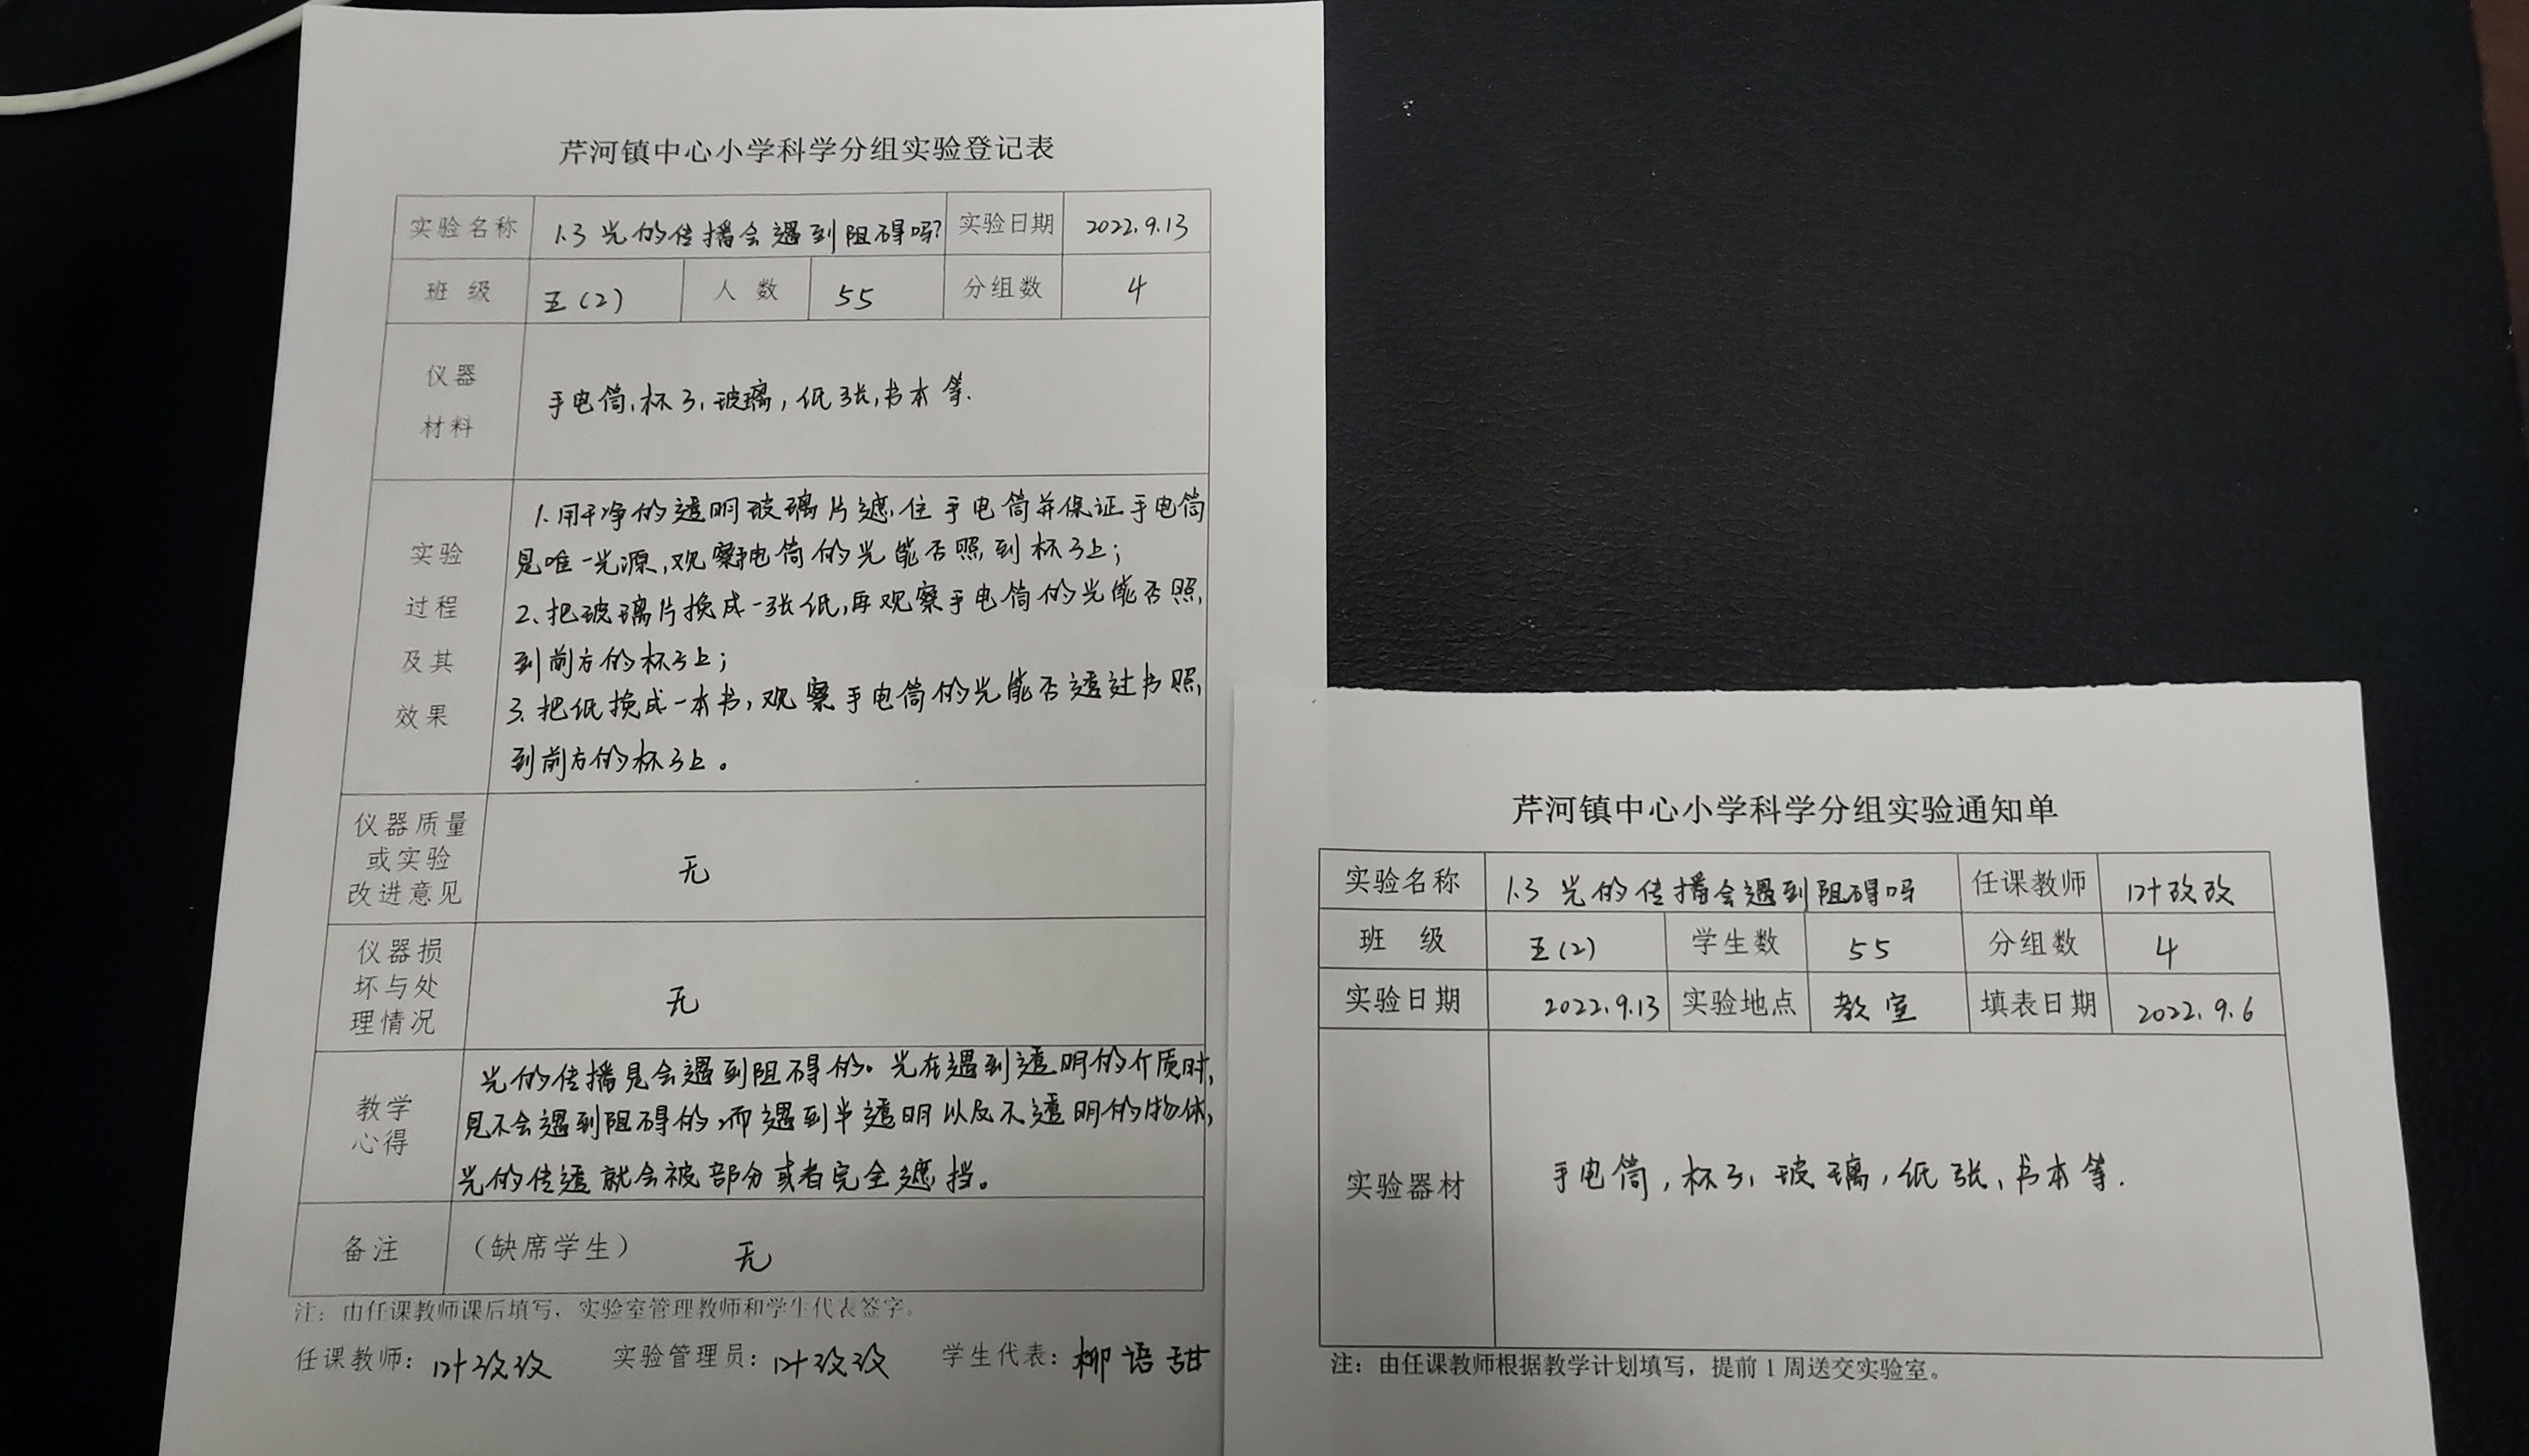 芹河镇中心小学科学分组实验登记表
实验名称 1.3 光的传播会遇到阻碍吗? 实验日期 2022.9.13
班 级 五(2) 人 数 55 分组数 4
仪器
材料
手电筒,杯子,玻璃,纸张,书本等.
实验
过程
及其
效果
1.用干净的透明玻璃片遮住手电筒并保证手电筒
是唯一光源,观察手电筒的光能否照到杯子上;
2.把玻璃片换成一张纸,再观察手电筒的光能否照
到前方的杯子上;
3.把纸换成一本书,观察手电筒的光能否透过书照
到前方的杯子上。
仪器质量
或实验
改进意见
无
仪器损
坏与处
理情况
无
教学
心得
光的传播是会遇到阻碍的。光在遇到透明的介质时,
是不会遇到阻碍的,而遇到半透明以及不透明的物体,
光的传透就会被部分或者完全遮挡。
备注 (缺席学生) 无
注:由任课教师课后填写,实验室管理教师和学生代表签字。
任课教师:叶玫玫 实验管理员:叶玫玫 学生代表:柳语甜
芹河镇中心小学科学分组实验通知单
实验名称 1.3 光的传播会遇到阻碍吗 任课教师 叶玫玫
班 级 五(2) 学生数 55 分组数 4
实验日期 2022.9.13 实验地点 教室 填表日期 2022.9.6
实验器材 手电筒,杯子,玻璃,纸张,书本等.
注:由任课教师根据教学计划填写,提前1周送交实验室。